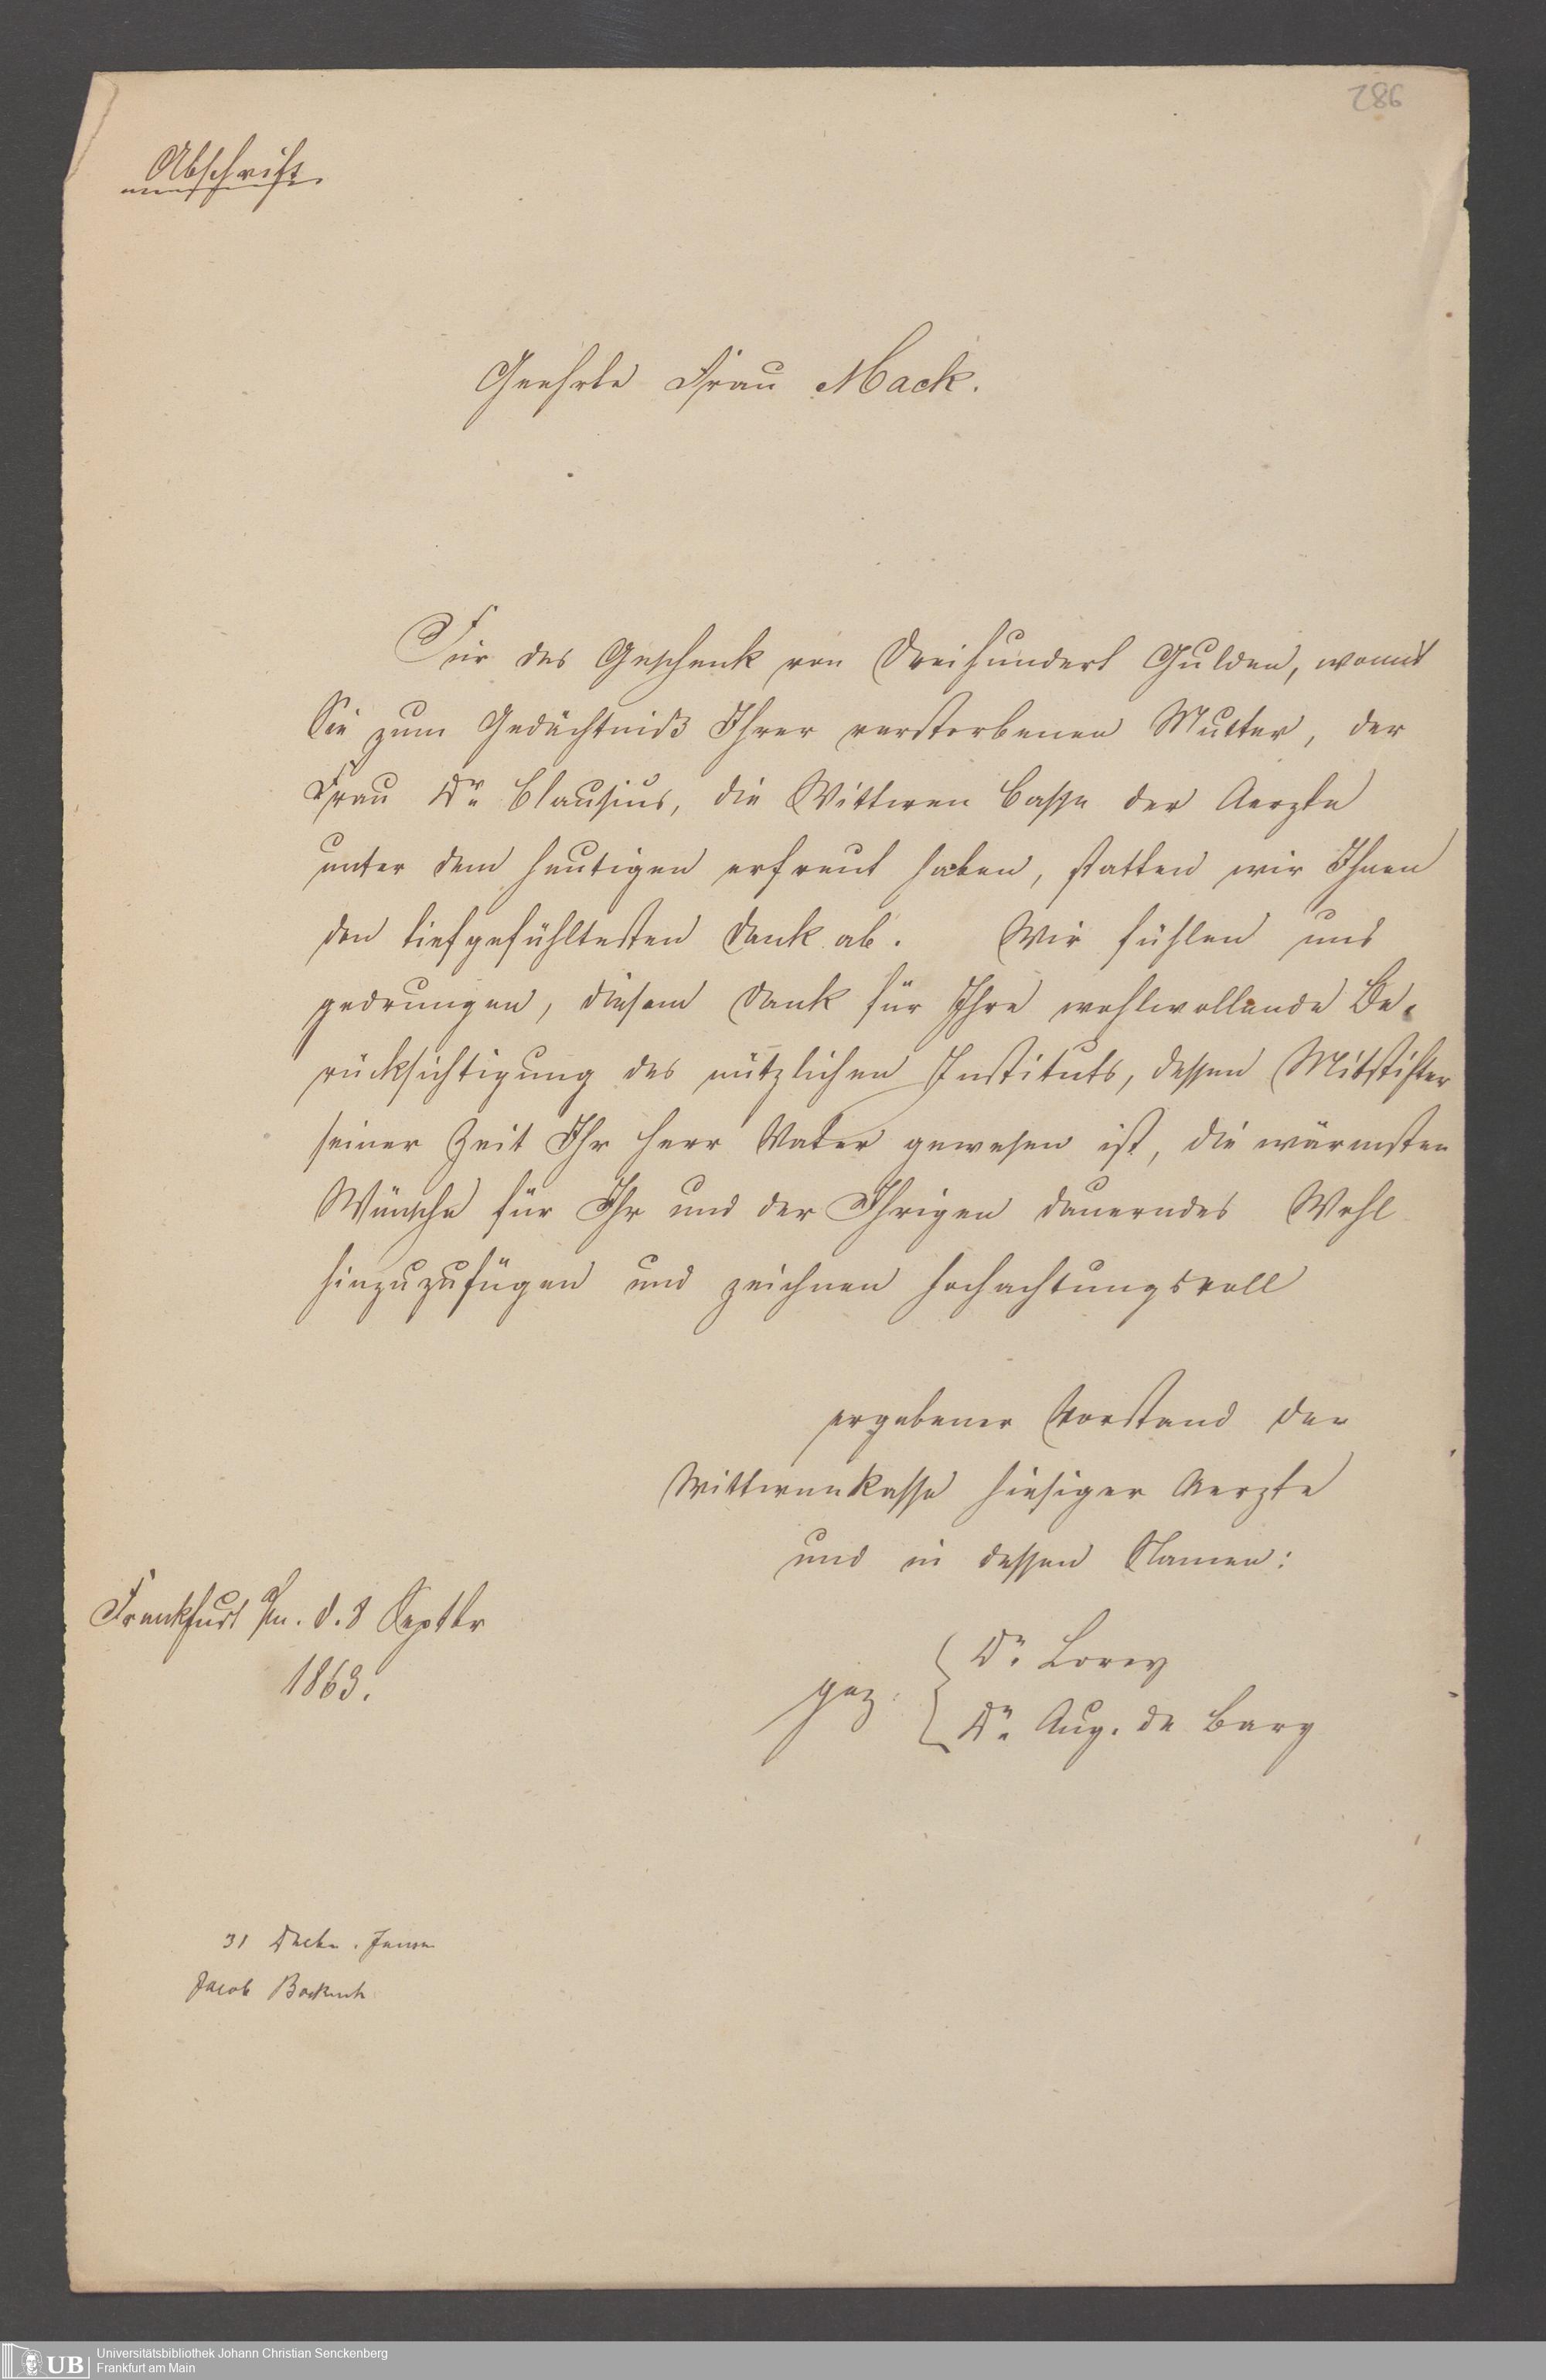 286
Abschrift.
Geehrte Frau Mack.
Für das Geschenk von Dreihundert Gulden, womit
Sie zum Gedächtniß Ihrer verstorbenen Mutter, der
Frau Dr. Clausius, die Wittwen Casse der Aerzte
unter dem heutigen erfreut haben, statten wir Ihnen
den tiefgefühltesten Dank ab. Wir fühlen uns
gedrungen, diesem Dank für Ihre wohlwollende Be-
rücksichtigung des nützlichen Instituts, dessen Mitstifter
seiner Zeit Ihr Herr Vater gewesen ist, die wärmsten
Wünsche für Ihr und der Ihrigen dauerndes Wohl
hinzuzufügen und zeichnen hochachtungsvoll
ergebener Vorstand der
Wittwenkasse hiesiger Aerzte
und in dessen Namen:
Frankfurt a/m. d. 8 Septbr
1863.
gez: Dr. Lorey
Dr. Aug. de Bary
31
Jacob
UB Universitätsbibliothek Johann Christian Senckenberg
Frankfurt am Main